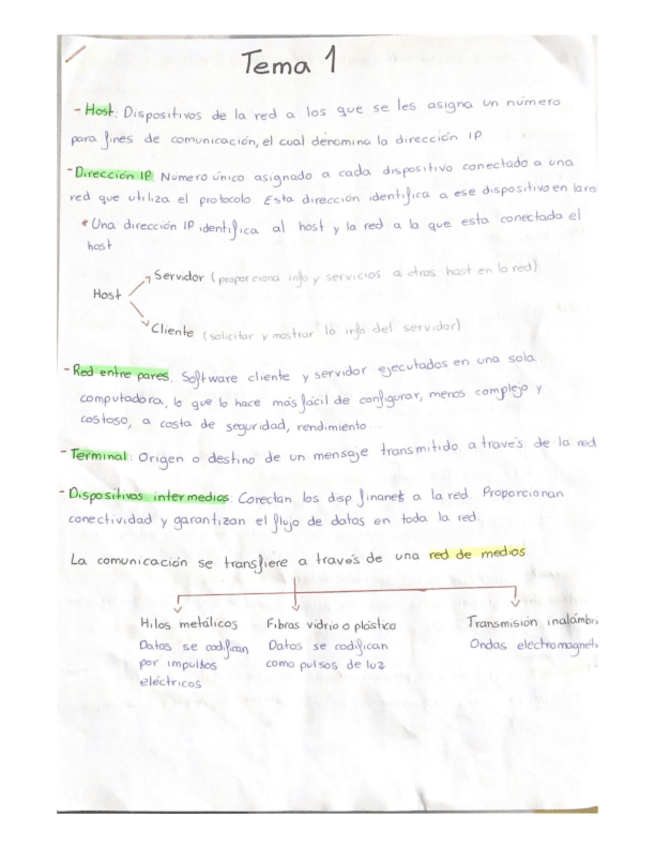 Tema 1
- Host: Dispositivos de la red a los que se les asigna un número
para fines de comunicación, el cual denomina la dirección IP
- Dirección IP: Número único asignado a cada dispositivo conectado a una
red que utiliza el protocolo. Esta dirección identifica a ese dispositivo en la re
* Una dirección IP identifica al host y la red a la que esta conectada el
host
Servidor (proporciona info y servicios a otros host en la red)
Host
Cliente (solicitar y mostrar la info del servidor)
- Red entre pares. Software cliente y servidor ejecutados en una sola
computadora, lo que lo hace más fácil de configurar, menos complejo y
costoso, a costa de seguridad, rendimiento...
- Terminal: Origen o destino de un mensaje transmitido a través de la red
- Dispositivos intermedios: Conectan los disp finales a la red. Proporcionan
conectividad y garantizan el flujo de datos en toda la red.
La comunicación se transfiere a través de una red de medios
Hilos metálicos Fibras vidrio o plástico Transmisión inalámbri
Datos se codifican Datos se codifican Ondas electromagnéti
por impulsos como pulsos de luz
eléctricos